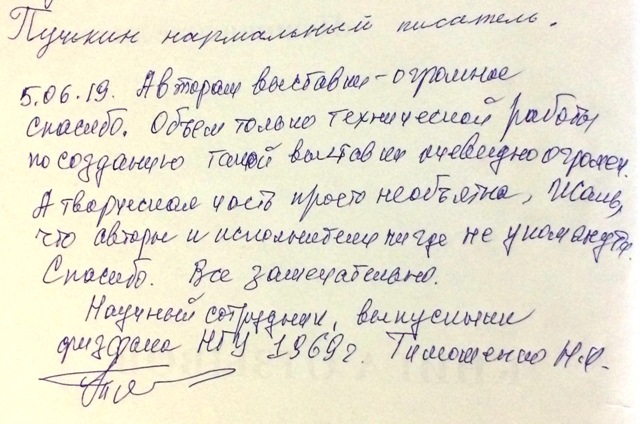 Пушкин нармальный писатель.
5.06.19. Авторам выставки - огромное
спасибо. Объем только технической работы
по созданию такой выставки очевидно огромен.
А творческая часть просто необъятна, Жаль,
что авторы и исполнители нигде не упомянуты.
Спасибо. Все замечательно.
Научный сотрудник, выпускник
физфака НГУ 1969г. Тимошенко Н.Я.